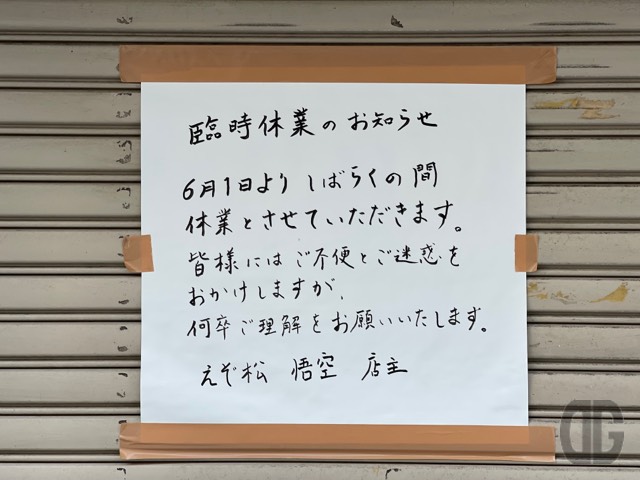 臨時休業のお知らせ
6月1日よりしばらくの間
休業とさせていただきます。
皆様にはご不便とご迷惑を
おかけしますが、
何卒ご理解をお願いいたします。
えぞ松 悟空 店主
DG